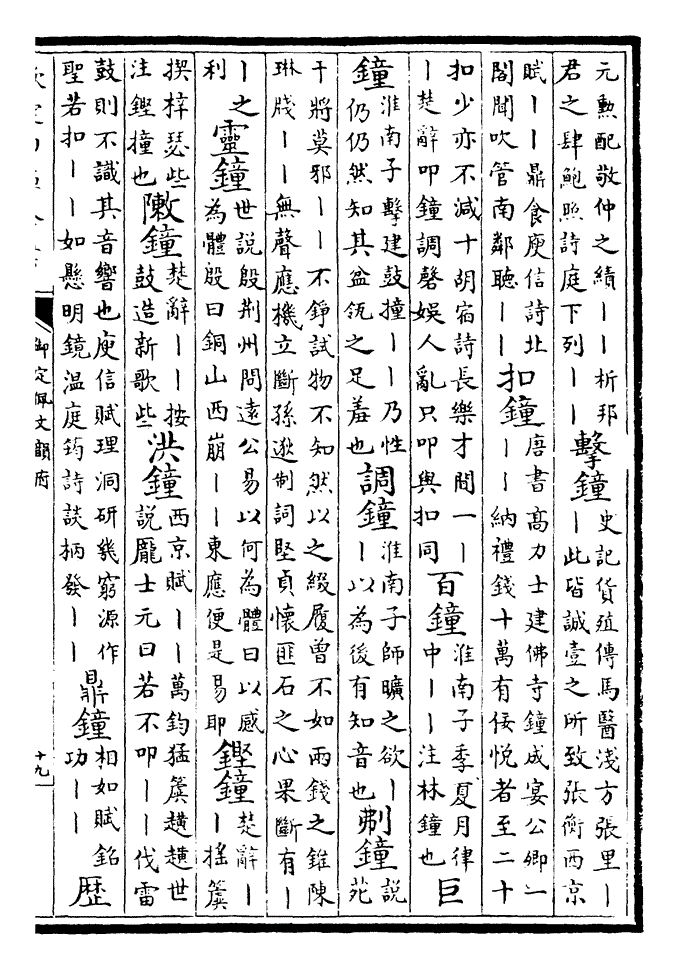 元勲配敬仲之績丨丨析邦
君之肆鮑照詩庭下列丨丨
擊鐘
史記貨殖傳馬醫淺方張里丨
丨此皆誠壹之所致張衡西京
賦丨丨鼎食庾信詩北
閣聞吹管南鄰聽丨丨
扣鐘
唐書髙力士建佛寺鐘成宴公卿一
丨丨納禮錢十萬有佞悦者至二十
扣少亦不減十胡宿詩長樂才聞一丨
丨楚辭叩鐘調磬娱人亂只叩與扣同
百鐘
淮南子季夏月律
中丨丨注林鐘也
巨
鐘
淮南子擊建鼓撞丨丨乃性
仍仍然知其盆瓴之足羞也
調鐘
淮南子師曠之欲丨
丨以為後有知音也
刜鐘
說
苑
干將莫邪丨丨不錚試物不知然以之綴履曾不如兩錢之錐陳
琳牋丨丨無聲應機立斷孫逖制詞堅貞懷匪石之心果斷有丨
丨之
利
靈鐘
世說殷荆州問遠公易以何為體曰以感
為體殷曰銅山西崩丨丨東應便是易耶
鏗鐘
楚辭丨
丨揺簴
揳梓瑟些
注鏗撞也
敶鐘
楚辭丨丨按
鼓造新歌些
洪鐘
西京賦丨丨萬鈞猛簴趪趪世
說龎士元曰若不叩丨丨伐雷
鼓則不識其音響也庾信賦理洞研幾窮源作
聖若扣丨丨如懸明鏡温庭筠詩談柄發丨丨
鼎鐘
相如賦銘
功丨丨
歴
御定佩文韻府
十九